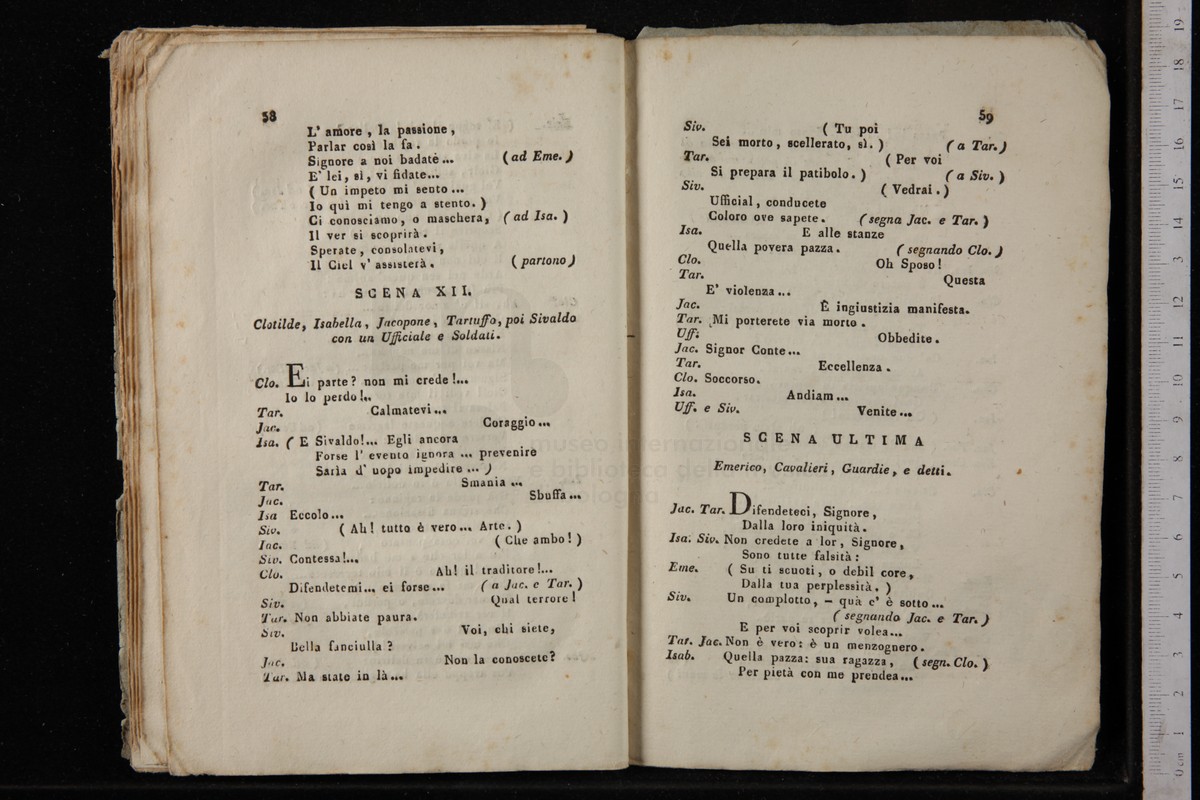 58
L' amore , la passione ,
Parlar così la fa .
Signore a noi badate... (ad Eme.)
E' lei, sì, vi fidate...
( Un impeto mi sento ...
Io quì mi tengo a stento. )
Ci conosciamo, o maschera, (ad Isa. )
Il ver si scoprirà .
Sperate , consolatevi ,
Il Ciel v' assisterà . (partono)
SCENA XII.
Clotilde, Isabella, Jacopone, Tartuffo, poi Sivaldo
con un Ufficiale e Soldati.
Clo. Ei parte? non mi crede!...
Io lo perdo!..
Tar. Calmatevi...
Jac. Coraggio...
Isa. ( E Sivaldo!... Egli ancora
Forse l' evento ignora ... prevenire
Sarìa d' uopo impedire ... )
Tar. Smania ...
Jac. Sbuffa...
Isa Eccolo...
Siv. ( Ah! tutto è vero... Arte. )
Jac. ( Che ambo! )
Siv. Contessa!...
Clo. Ah! il traditore!...
Difendetemi... ei forse... (a Jac. e Tar. )
Siv. Qual terrore!
Tar. Non abbiate paura.
Siv. Voi, chi siete,
Bella fanciulla ?
Jac. Non la conoscete?
Tar. Ma state in là...
59
Siv. ( Tu poi
Sei morto, scellerato, sì. ) (a Tar.)
Tar. ( Per voi
Si prepara il patibolo. ) (a Siv. )
Siv. ( Vedrai. )
Ufficial, conducete
Coloro ove sapete. (segna Jac. e Tar. )
Isa. E alle stanze
Quella povera pazza. ( segnando Clo.)
Clo. Oh Sposo!
Tar. Questa
E' violenza...
Jac. È ingiustizia manifesta.
Tar. Mi porterete via morto .
Uff. Obbedite.
Jac. Signor Conte...
Tar. Eccellenza .
Clo. Soccorso.
Isa. Andiam...
Uff. e Siv. Venite...
SCENA ULTIMA
Emerico, Cavalieri, Guardie, e detti.
Jac. Tar. Difendeteci, Signore,
Dalla loro iniquità.
Isa. Siv. Non credete a lor, Signore,
Sono tutte falsità :
Eme. ( Su ti scuoti, o debil core,
Dalla tua perplessità. )
Siv. Un complotto, - quà c' è sotto...
( segnando Jac. e Tar.)
E per voi scoprir volea...
Tar. Jac. Non è vero: è un menzognero.
Isab. Quella pazza: sua ragazza, (segn. Clo. )
Per pietà con me prendea...
museo internazionale
e biblioteca della
bologna